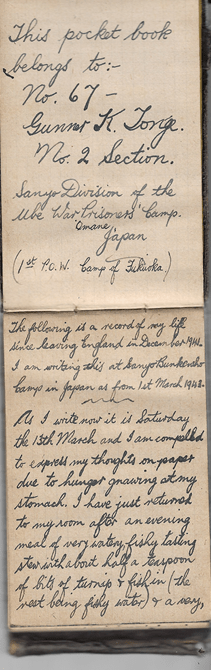 This pocket book
belongs to:-
No. 67 -
Gunner K. Tonge.
No. 2 Section.
Sanyo Division of the
Ube War Prisoners' Camp.
Omane,
Japan
(1st P.O.W. Camp of Fukuoka.)
The following is a record of my life
since leaving England in December 1941.
I am writing this at Sanyo
Camp in Japan as from 1st March 1943.
As I write now it is Saturday
the 13th March and I am compelled
to express my thoughts on paper
due to hunger gnawing at my
stomach. I have just returned
to my room after an evening
meal of very watery, fishy tasting
stew with about half a teaspoon
of bits of turnip & fish in (the
rest being fishy water) & a very,